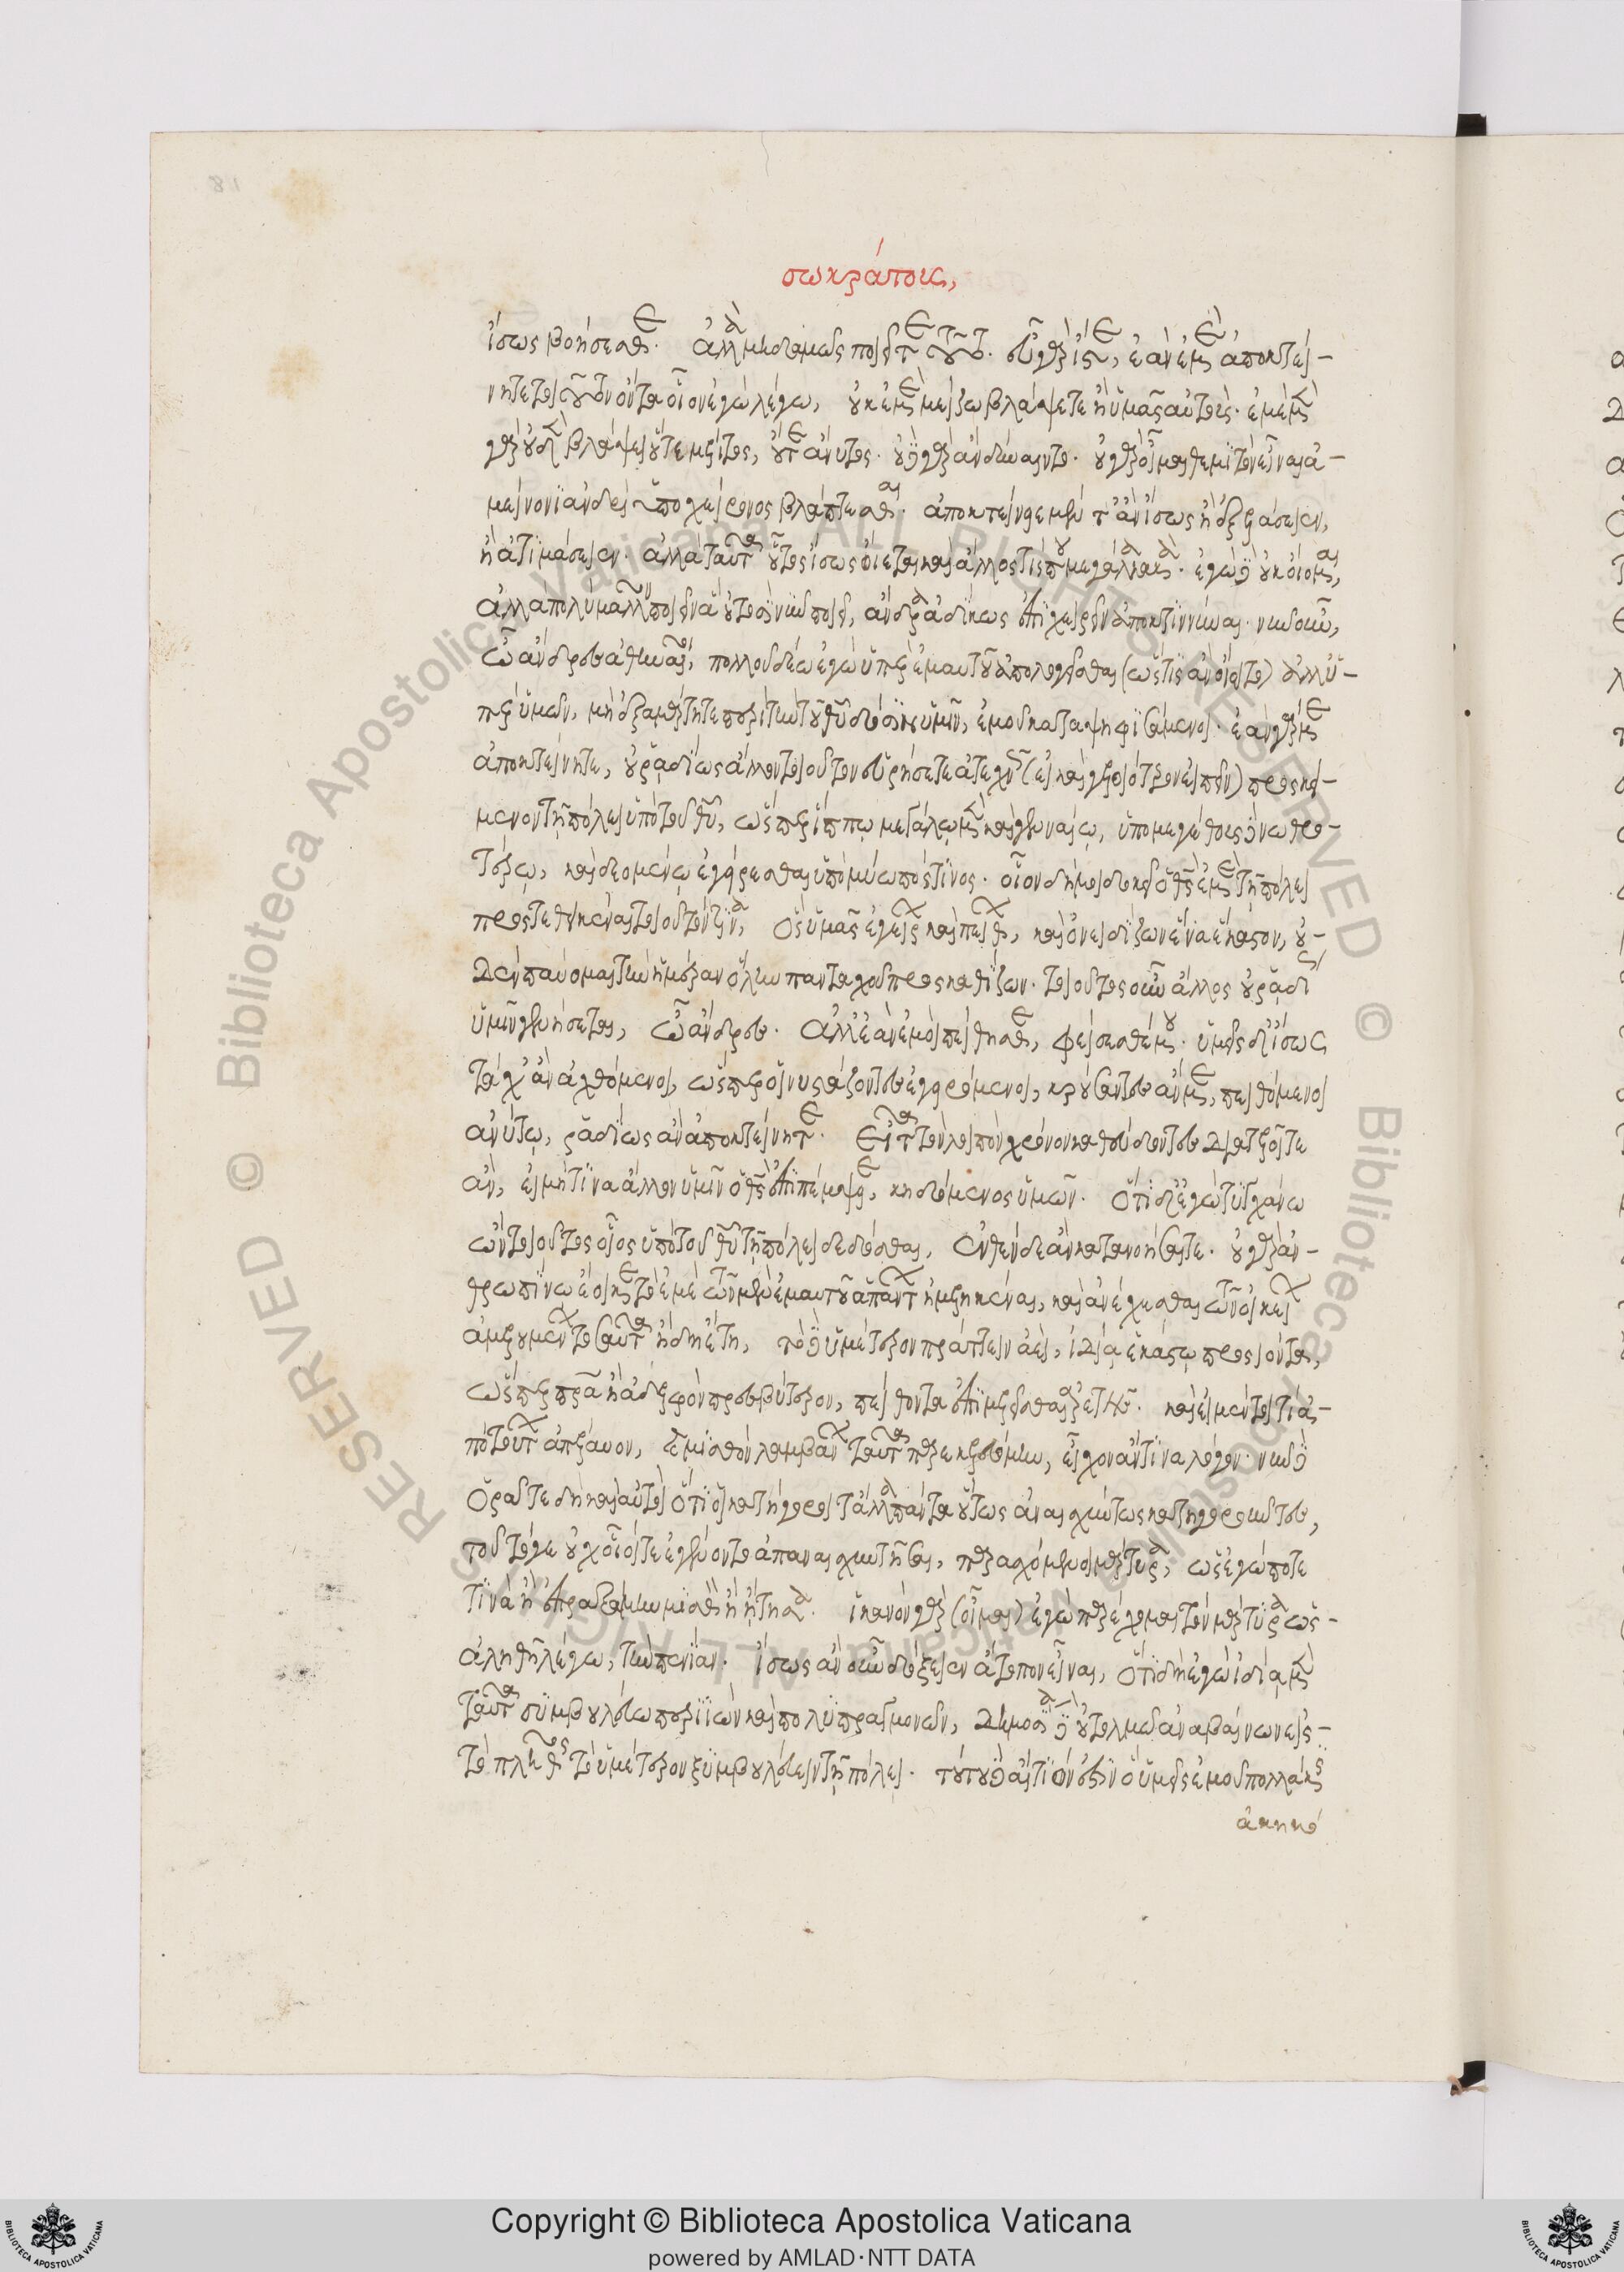 σωκράτους,
ἴσως βοήσεσθε. ἀλλὰ μηδαμῶς ποιεῖτε τοῦτο. εὖ γὰρ ἴστε, ἐὰν ἐμὲ ἀποκτεί-
νητε τοιοῦτον ὄντα οἷον ἐγὼ λέγω, οὐκ ἐμὲ μείζω βλάψετε ἢ ὑμᾶς αὐτούς. ἐμὲ μὲν
γὰρ οὐδὲν βλάψει οὔτε μέλιτος, οὔτε ἄνυτος. οὐδὲ γὰρ ἂν δύναιντο. οὐ γὰρ οἶμαι θεμιτὸν εἶναι ἀ-
μείνονι ἀνδρὶ ὑπὸ χείρονος βλάπτεσθαι. ἀποκτείνειε μέν τ' ἂν ἴσως ἢ ἐξελάσειεν,
ἢ ἀτιμάσειεν. ἀλλὰ ταῦτα οὗτος ἴσως οἴεται καὶ ἄλλος τίς που μεγάλα κακά. ἐγὼ δὲ οὐκ οἴομαι,
ἀλλὰ πολὺ μᾶλλον ποιεῖν ἃ οὗτοσὶ νῦν ποιεῖ, ἄνδρα ἀδίκως ἐπιχειρεῖν ἀποκτιννύναι. νῦν οὖν,
ὦ ἄνδρες ἀθηναῖοι, πολλοῦ δέω ἐγὼ ὑπὲρ ἐμαυτοῦ ἀπολογεῖσθαι (ὥς τις ἂν οἴοιτο) ἀλλ' ὑ-
πὲρ ὑμῶν, μὴ ἐξαμάρτητε περὶ τὴν τοῦ θεοῦ δόσιν ὑμῖν, ἐμοῦ καταψηφισάμενοι. ἐὰν γὰρ ἐμὲ
ἀποκτείνητε, οὐ ῥαδίως ἄλλον τοιοῦτον εὑρήσετε ἀτεχνῶς (εἰ καὶ γελοιότερον εἰπεῖν) προσκεί-
μενον τῇ πόλει ὑπὸ τοῦ θεοῦ, ὥσπερ ἵππῳ μεγάλῳ μὲν καὶ γενναίῳ, ὑπὸ μεγέθους δὲ νωθρο-
τέρῳ, καὶ δεομένῳ ἐγείρεσθαι ὑπὸ μύωπός τινος. οἷον δή μοι δοκεῖ ὁ θεὸς ἐμὲ τῇ πόλει
προστεθηκέναι τοιοῦτόν τινα, ὃς ὑμᾶς ἐγείρων καὶ πείθων, καὶ ὀνειδίζων ἕνα ἕκαστον, οὐ-
δὲν παύομαι τὴν ἡμέραν ὅλην πανταχοῦ προσκαθίζων. τοιοῦτος οὖν ἄλλος οὐ ῥᾳδίως
ὑμῖν γενήσεται, ὦ ἄνδρες. ἀλλ' ἐὰν ἐμοὶ πείθησθε, φείσεσθέ μου. ὑμεῖς δ' ἴσως
τάχ' ἂν ἀχθόμενοι, ὥσπερ οἱ νυστάζοντες ἐγειρόμενοι, κρούσαντες ἄν με, πειθόμενοι
ἀνύτῳ, ῥᾳδίως ἂν ἀποκτείνητε. εἶτα τὸν λοιπὸν χρόνον καθεύδοντες διατελοῖτε
ἄν, εἰ μή τινα ἄλλον ὑμῖν ὁ θεὸς ἐπιπέμψειε, κηδόμενος ὑμῶν. ὅτι δ' ἐγὼ τυγχάνω
ὢν τοιοῦτος οἷος ὑπὸ τοῦ θεοῦ τῇ πόλει δεδόσθαι, ἐνθένδε ἂν κατανοήσαιτε. οὐ γὰρ ἀν-
θρωπίνῳ ἔοικε τὸ ἐμὲ τῶν μὲν ἐμαυτοῦ ἁπάντων ἠμεληκέναι, καὶ ἀνέχεσθαι τῶν οἰκείων
ἀμελουμένων τοσαῦτα ἤδη ἔτη, τὸ δὲ ὑμέτερον πράττειν ἀεί, ἰδίᾳ ἑκάστῳ προσιόντα,
ὥσπερ πατέρα ἢ ἀδελφὸν πρεσβύτερον, πείθοντα ἐπιμελεῖσθαι ἀρετῆς. καὶ εἰ μέντοι τι ἀ-
πὸ τούτων ἀπέλαυον, καὶ μισθὸν λαμβάνων ταῦτα παρεκελευόμην, εἶχον ἄν τινα λόγον. νῦν δὲ
ὁρᾶτε δὴ καὶ αὐτοὶ ὅτι οἱ κατήγοροι τἄλλα πάντα οὕτως ἀναισχύντως κατηγοροῦντες,
τοῦτό γε οὐχ οἷοί τε ἐγένοντο ἀπαναισχυντῆσαι, παρασχόμενοι μάρτυρα, ὡς ἐγώ ποτέ
τινα ἢ ἐπραξάμην μισθὸν ἢ ᾔτησα. ἱκανὸν γὰρ (οἶμαι) ἐγὼ παρέχομαι τὸν μάρτυρα ὡς
ἀληθῆ λέγω, τὴν πενίαν. ἴσως ἂν οὖν δόξειεν ἄτοπον εἶναι, ὅτι δὴ ἐγὼ ἰδίᾳ μὲν
ταῦτα συμβουλεύω περιϊὼν καὶ πολυπραγμονῶν, δημοσίᾳ δὲ οὐ τολμῶ ἀναβαίνων εἰς
τὸ πλῆθος τὸ ὑμέτερον ξυμβουλεύειν τῇ πόλει. τούτου δὲ αἴτιόν ἐστιν ὃ ὑμεῖς ἐμοῦ πολλάκις
ἀκηκό
81
Copyright © Biblioteca Apostolica Vaticana
powered by AMLAD·NTT DATA